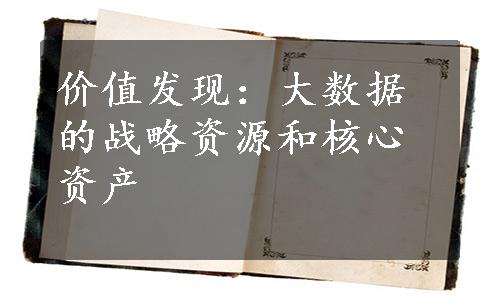 价值发现：大数据
的战略资源和核心
资产